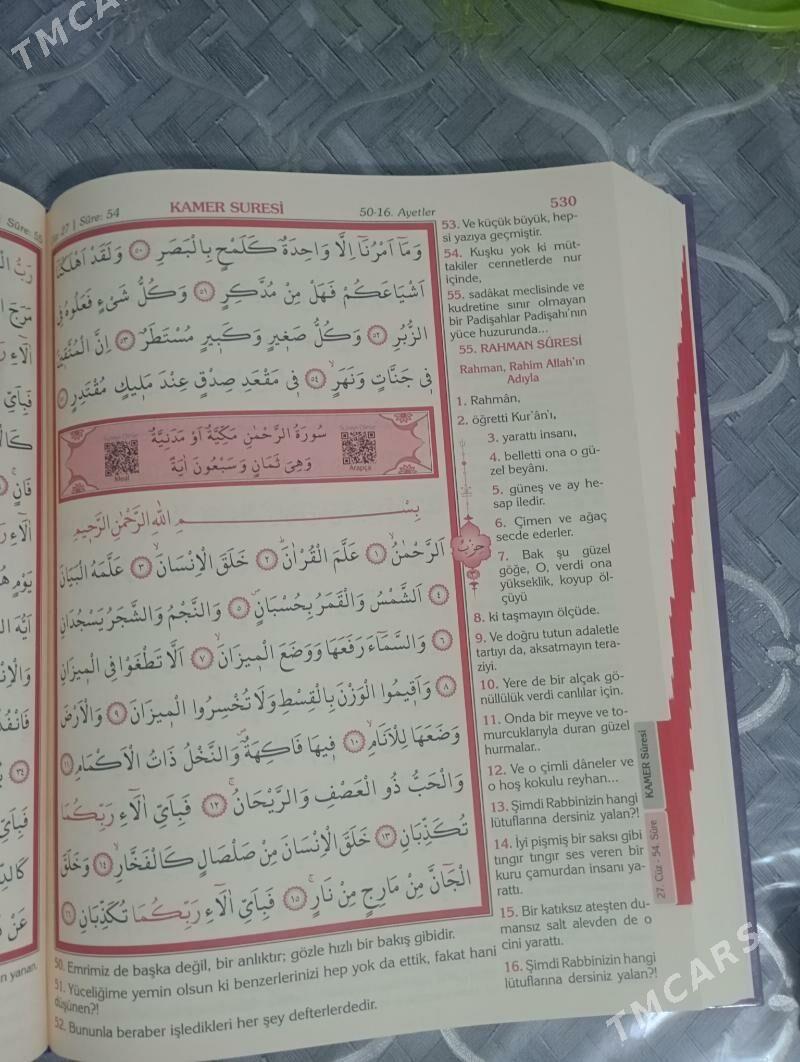 TMCARS
Sûre: 55
27 | Sûre: 54 KAMER SURESİ 50-16. Ayetler 530
وَمَٓا اَمْرُنَٓا اِلَّا وَاحِدَةٌ كَلَمْحٍ بِالْبَصَرِ ﴿٥٠﴾ وَلَقَدْ اَهْلَكْنَٓا
اَشْيَاعَكُمْ فَهَلْ مِنْ مُدَّكِرٍ ﴿٥١﴾ وَكُلُّ شَيْءٍ فَعَلُوهُ فِي
الزُّبُرِ ﴿٥٢﴾ وَكُلُّ صَغ۪يرٍ وَكَب۪يرٍ مُسْتَطَرٌ ﴿٥٣﴾ اِنَّ الْمُتَّق۪ينَ
ف۪ي جَنَّاتٍ وَنَهَرٍۙ ﴿٥٤﴾ ف۪ي مَقْعَدِ صِدْقٍ عِنْدَ مَل۪يكٍ مُقْتَدِرٍ ﴿٥٥﴾
سُورَةُ الرَّحْمٰنِ مَكِّيَّةٌ اَوْ مَدَنِيَّةٌ
وَهِيَ ثَمَانٍ وَسَبْعُونَ اٰيَةً
Meal
Arapça
بِسْمِ اللّٰهِ الرَّحْمٰنِ الرَّح۪يمِ
اَلرَّحْمٰنُۙ ﴿١﴾ عَلَّمَ الْقُرْاٰنَۜ ﴿٢﴾ خَلَقَ الْاِنْسَانَۙ ﴿٣﴾ عَلَّمَهُ الْبَيَانَ
﴿٤﴾ اَلشَّمْسُ وَالْقَمَرُ بِحُسْبَانٍۖ ﴿٥﴾ وَالنَّجْمُ وَالشَّجَرُ يَسْجُدَانِ
﴿٦﴾ وَالسَّمَٓاءَ رَفَعَهَا وَوَضَعَ الْم۪يزَانَۙ ﴿٧﴾ اَلَّا تَطْغَوْا فِي الْم۪يزَانِ
﴿٨﴾ وَاَق۪يمُوا الْوَزْنَ بِالْقِسْطِ وَلَا تُخْسِرُوا الْم۪يزَانَ ﴿٩﴾ وَالْاَرْضَ
وَضَعَهَا لِلْاَنَامِۙ ﴿١٠﴾ ف۪يهَا فَاكِهَةٌۖ وَالنَّخْلُ ذَاتُ الْاَكْمَامِ ﴿١١﴾
وَالْحَبُّ ذُو الْعَصْفِ وَالرَّيْحَانُۚ ﴿١٢﴾ فَبِاَيِّ اٰلَٓاءِ رَبِّكُمَا
تُكَذِّبَانِ ﴿١٣﴾ خَلَقَ الْاِنْسَانَ مِنْ صَلْصَالٍ كَالْفَخَّارِۙ ﴿١٤﴾ وَخَلَقَ
الْجَٓانَّ مِنْ مَارِجٍ مِنْ نَارٍۚ ﴿١٥﴾ فَبِاَيِّ اٰلَٓاءِ رَبِّكُمَا تُكَذِّبَانِ ﴿١٦﴾
50. Emrimiz de başka değil, bir anlıktır; gözle hızlı bir bakış gibidir.
51. Yüceliğime yemin olsun ki benzerlerinizi hep yok da ettik, fakat hani
düşünen?!
52. Bununla beraber işledikleri her şey defterlerdedir.
53. Ve küçük büyük, hep-
si yazıya geçmiştir.
54. Kuşku yok ki müt-
takiler cennetlerde nur
içinde,
55. sadâkat meclisinde ve
kudretine sınır olmayan
bir Padişahlar Padişahı'nın
yüce huzurunda...
55. RAHMAN SÛRESİ
Rahman, Rahim Allah'ın
Adıyla
1. Rahmân,
2. öğretti Kur'ân'ı,
3. yarattı insanı,
4. belletti ona o gü-
zel beyânı.
5. güneş ve ay he-
sap iledir.
6. Çimen ve ağaç
secde ederler.
حزب
7. Bak şu güzel
göğe, O, verdi ona
yükseklik, koyup öl-
çüyü
8. ki taşmayın ölçüde.
9. Ve doğru tutun adaletle
tartıyı da, aksatmayın tera-
ziyi.
10. Yere de bir alçak gö-
nüllülük verdi canlılar için.
11. Onda bir meyve ve to-
murcuklarıyla duran güzel
hurmalar..
12. Ve o çimli dâneler ve
o hoş kokulu reyhan...
13. Şimdi Rabbinizin hangi
lütuflarına dersiniz yalan?!
14. İyi pişmiş bir saksı gibi
tıngır tıngır ses veren bir
kuru çamurdan insanı ya-
rattı.
15. Bir katıksız ateşten du-
mansız salt alevden de o
cini yarattı.
16. Şimdi Rabbinizin hangi
lütuflarına dersiniz yalan?!
KAMER Sûresi
27. Cüz - 54. Sûre
yanan,
TMCARS